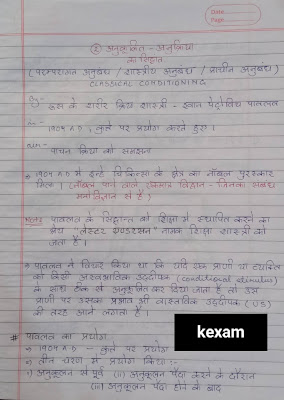 Date
Page
② अनुकूलित - अनुक्रिया
का सिद्धांत
(परम्परागत अनुबंध / शास्त्रीय अनुबंध / प्राचीन अनुबंध)
CLASSICAL CONDITIONING
By- रूस के शरीर क्रिया शास्त्री - इवान पेट्रोविच पावलव
In- 1904 A.D, कुत्ते पर प्रयोग करते हुए।
पाचन क्रिया को समझना
→ 1904 A.D में इन्हें चिकित्सा के क्षेत्र का नोबल पुरस्कार
मिला। (नोबल पाने वाले एकमात्र विज्ञान - जिनका संबंध
मनोविज्ञान से है)
Note: पावलव के सिद्धान्त को शिक्षा में स्थापित करने का
श्रेय "लेस्टर एण्डरसन" नामक शिक्षा शास्त्री को
जाता है।
→ पावलव ने विचार किया था कि यदि एक प्राणी या व्यक्ति
को किसी अस्वभाविक उद्दीपक (conditional stimulus)
के साथ ठीक से अनुकूलित कर दिया जाता है तो उस
प्राणी पर उसका प्रभाव भी वास्तविक उद्दीपक (US)
की तरह आने लगता है।
kexam
# पावलव का प्रयोग
→ 1904 A.D - कुत्ते पर प्रयोग
→ तीन चरण में प्रयोग किया :-
i) अनुकूलन से पूर्व (ii) अनुकूलन पैदा करने के दौरान
(iii) अनुकूलन पैदा होने के बाद